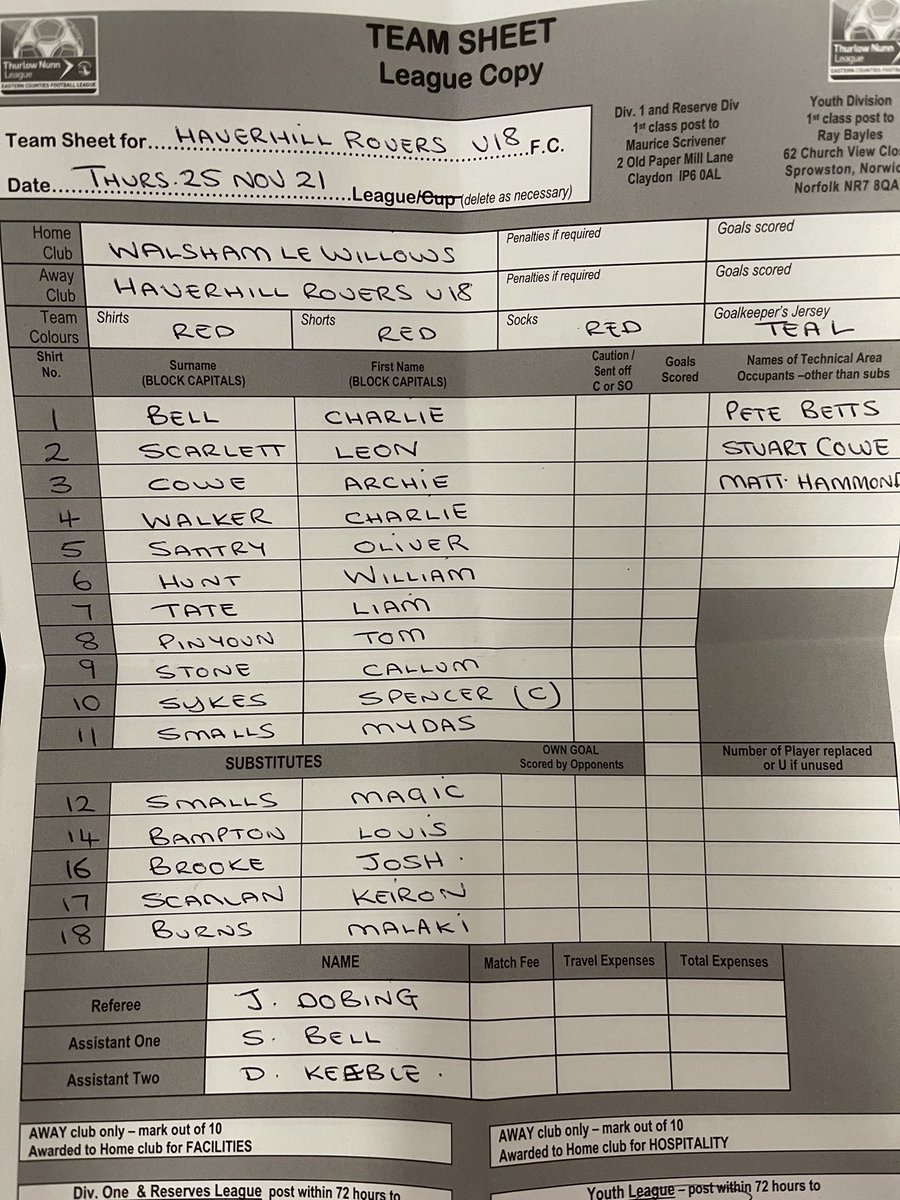 TEAM SHEET
League Copy
Thurlow Nunn
League
EASTERN COUNTIES FOOTBALL LEAGUE
Thurlow Nunn
League
EASTERN COUNTIES
Team Sheet for HAVERHILL ROVERS U18 F.C.
Date THURS. 25 NOV 21 League/Cup (delete as necessary)
Div. 1 and Reserve Div
1st class post to
Maurice Scrivener
2 Old Paper Mill Lane
Claydon IP6 0AL
Youth Division
1st class post to
Ray Bayles
62 Church View Clo
Sprowston, Norwic
Norfolk NR7 8QA
Home Club WALSHAM LE WILLOWS Penalties if required Goals scored
Away Club HAVERHILL ROVERS U18 Penalties if required Goals scored
Team Colours Shirts RED Shorts RED Socks RED Goalkeeper's Jersey TEAL
Shirt No. Surname (BLOCK CAPITALS) First Name (BLOCK CAPITALS) Caution / Sent off C or SO Goals Scored Names of Technical Area Occupants –other than subs
1 BELL CHARLIE PETE BETTS
2 SCARLETT LEON STUART COWE
3 COWE ARCHIE MATT HAMMOND
4 WALKER CHARLIE
5 SANTRY OLIVER
6 HUNT WILLIAM
7 TATE LIAM
8 PINYOUN TOM
9 STONE CALLUM
10 SYKES SPENCER (C)
11 SMALLS MYDAS
SUBSTITUTES OWN GOAL Scored by Opponents Number of Player replaced or U if unused
12 SMALLS MAGIC
14 BAMPTON LOUIS
16 BROOKE JOSH.
17 SCANLAN KEIRON
18 BURNS MALAKI
NAME Match Fee Travel Expenses Total Expenses
Referee J. DOBING
Assistant One S. BELL
Assistant Two D. KEEBLE.
AWAY club only – mark out of 10
Awarded to Home club for FACILITIES
AWAY club only – mark out of 10
Awarded to Home club for HOSPITALITY
Div. One & Reserves League post within 72 hours to
Youth League – post within 72 hours to